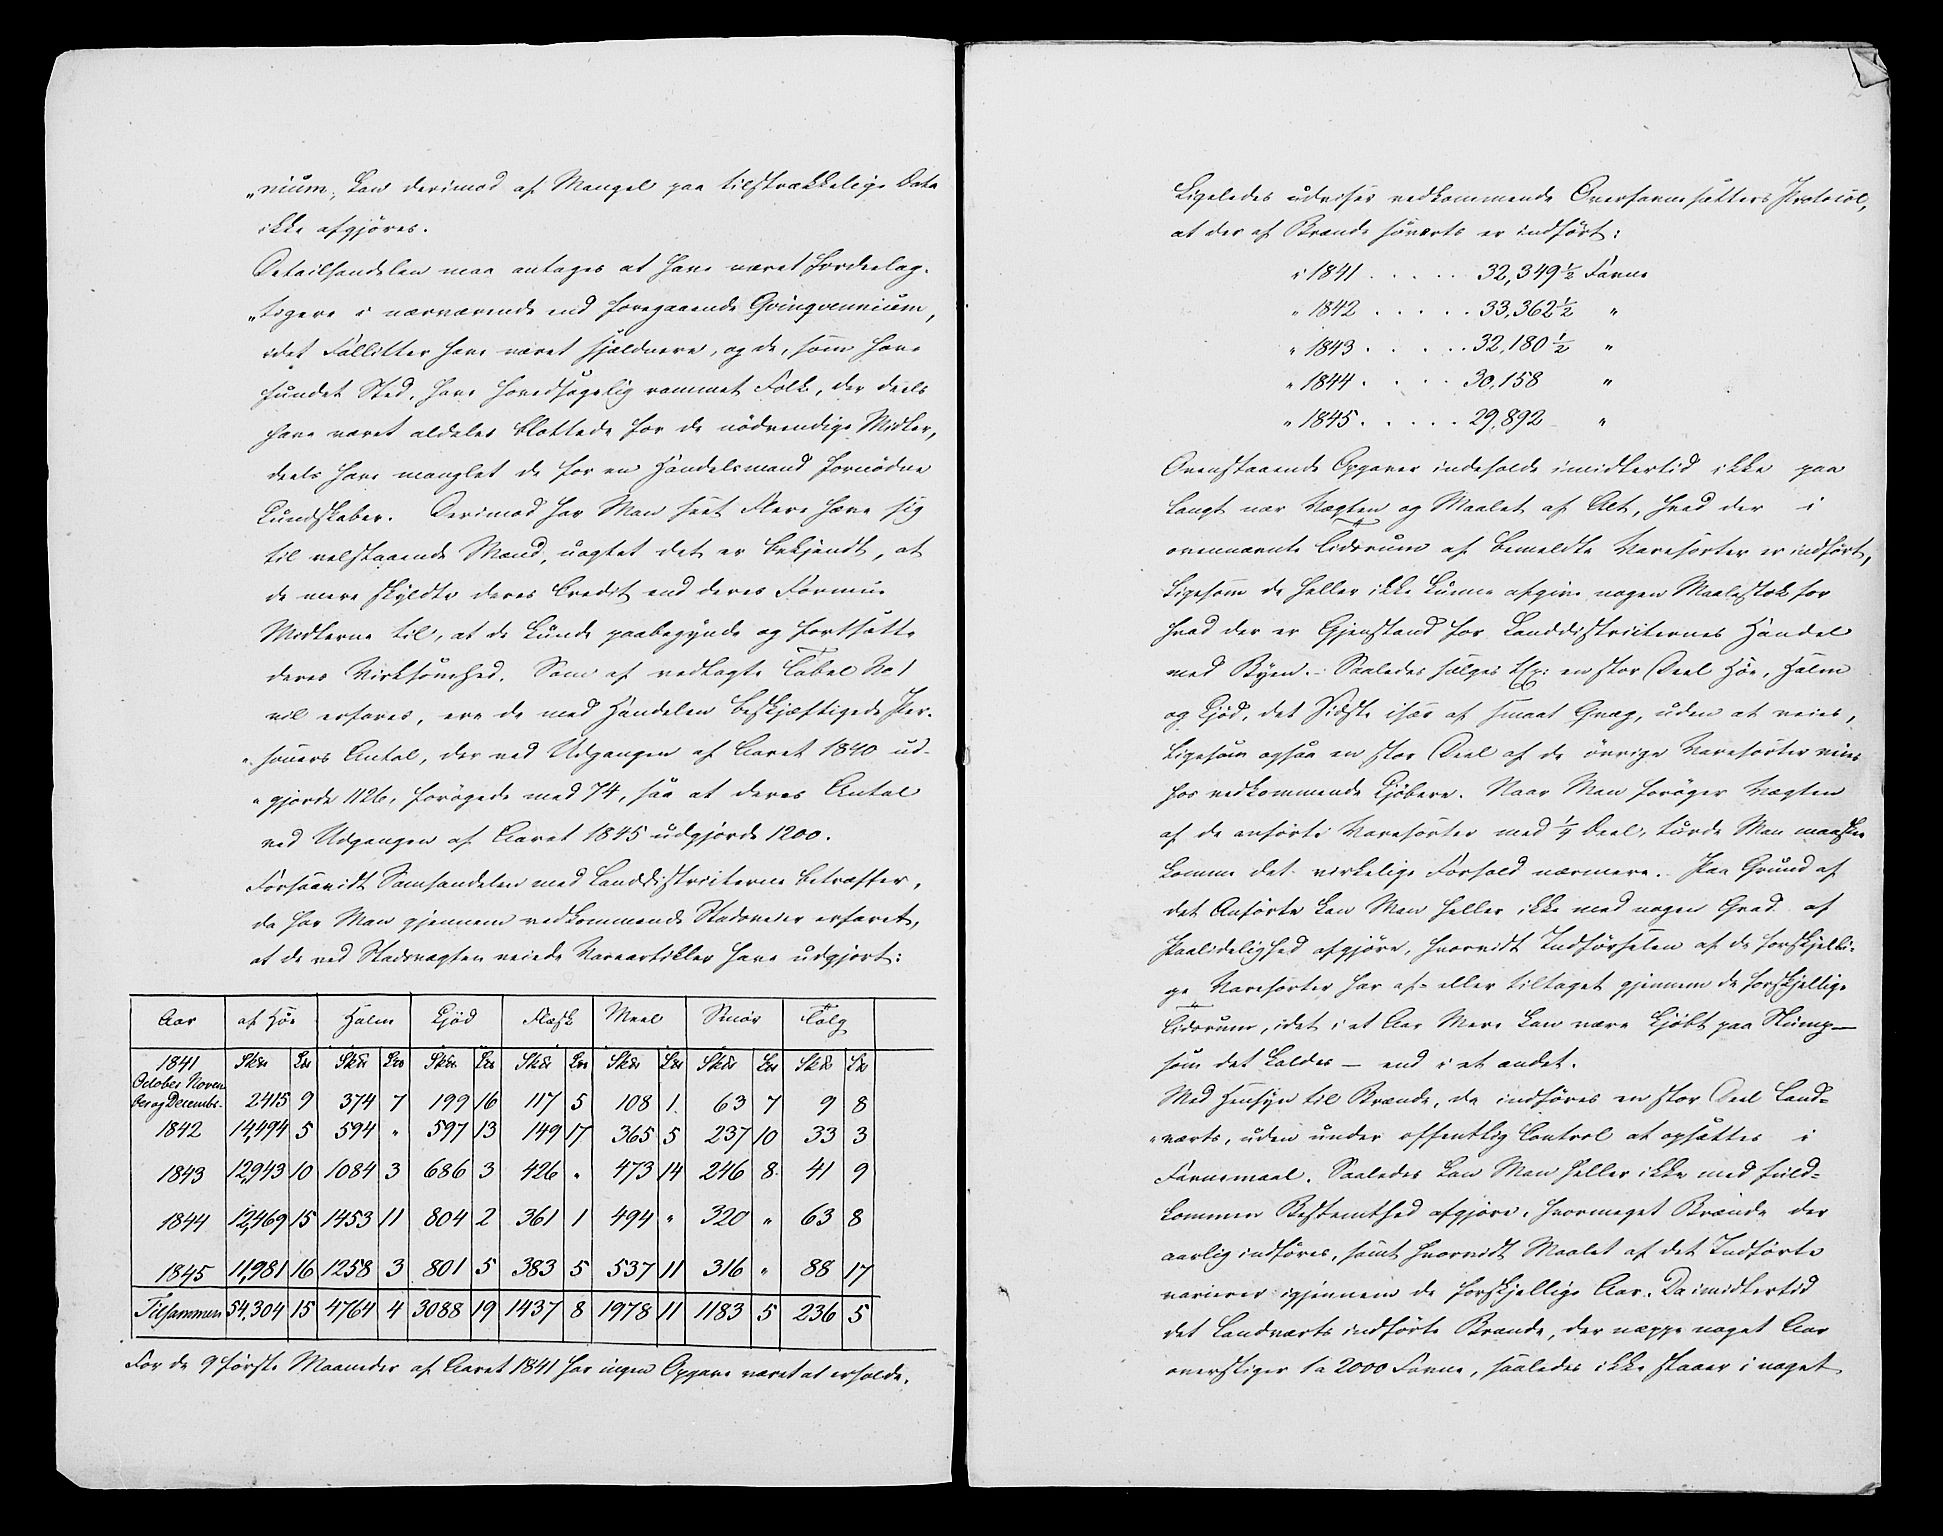 „nium, kan derimod af Mangel paa tilstrækkelige Data
ikke afgjöres.
Detailhandelen maa antages at have været fordeelag-
„tigere i nærværende end foregaaende Qvinqvennium,
idet Fallitter have været sjeldnere, og de, som have
fundet Sted, have hovedsagelig rammet Folk, der deels
have været aldeles blottede for de nödvendige Midler,
deels have manglet de for en Handelsmand fornödne
Kundskaber. Derimod har Man seet Flere hæve sig
til velstaaende Mænd, uagtet det er bekjendt, at
de mere skyldte deres Credit end deres Formue
Midlerne til, at de kunde paabegynde og fortsætte
deres Virksomhed. Som af vedlagte Tabel No 1
vil erfares, ere de med Handelen beskjæftigede Per-
„soners Antal, der ved Udgangen af Aaret 1840 ud-
„gjorde 1126, forögede med 74, saa at deres Antal
ved Udgangen af Aaret 1845 udgjorde 1200.
Forsaavidt Samhandelen med Landdistricterne betræffer,
da har Man gjennem vedkommende Stadsveier erfaret,
at de ved Stadsvægten veiede Vareartikler have udgjort:
Aar af Höe Halm Kjöd Flesk Meel Smör Talg
1841 Sk℔ L℔ Sk℔ L℔ Sk℔ L℔ Sk℔ L℔ Sk℔ L℔ Sk℔ L℔ Sk℔ L℔
October Novem
ber og Decembr. 2415 9 374 7 199 16 117 5 108 1 63 7 9 8
1842 14,494 5 594 " 597 13 149 17 365 5 237 10 33 3
1843 12,943 10 1084 3 686 3 426 " 473 14 246 8 41 9
1844 12,469 15 1453 11 804 2 361 1 494 " 320 " 63 8
1845 11,981 16 1258 3 801 5 383 5 537 11 316 " 88 17
Tilsammen 54,304 15 4764 4 3088 19 1437 8 1978 11 1183 5 236 5
For de 9 förste Maaneder af Aaret 1841 har ingen Opgave været at erholde.
Ligeledes udviser vedkommende Overfavnsætters Protocol,
at der af Brænde söværts er indfört:
i 1841 . . . . . 32,349 ½ Favne
" 1842 . . . . . 33,362 ½ "
" 1843 . . . . . 32,180 ½ "
" 1844 . . . . 30,158 "
" 1845 . . . . . 29,892 "
Ovenstaaende Opgaver indeholde imidlertid ikke paa
langt nær Vægten og Maalet af Alt, hvad der i
ovennævnte Tidsrum af bemeldte Varesorter er indfört,
ligesom de heller ikke kunne afgive nogen Maalestok for
hvad der er Gjenstand for Landdistricternes Handel
med Byen. Saaledes sælges t. Ex: en stor Deel Höe, Halm
og Kjöd, det Sidste især af smaat Qvæg, uden at veies,
ligesom ogsaa en stor Deel af de övrige Varesorter veies
hos vedkommende Kjöbere. Naar Man foröger Vægten
af de anförte Varesorter med ¼ Deel, turde Man maaskee
komme det virkelige Forhold nærmere. Paa Grund af
det Anförte kan Man heller ikke med nogen Grad af
Paalidelighed afgjöre, hvorvidt Indförselen af de forskjelli-
ge Varesorter har af- eller tiltaget gjennem de forskjellige
Tidsrum, idet i et Aar Mere kan være kjöbt paa Slump —
som det kaldes — end i et andet.
Med Hensyn til Brænde, da indföres en stor Deel land-
„værts, uden under offentlig Control at opsættes i
Favnemaal. Saaledes kan Man heller ikke med fuld-
kommen Bestemthed afgjöre, hvormeget Brænde der
aarlig indföres, samt hvorvidt Maalet af det Indförte
varierer igjennem de forskjellige Aar. Da imidlertid
det landværts indförte Brænde, der neppe noget Aar
overstiger 1 a 2000 Favne, saaledes ikke staaer i noget